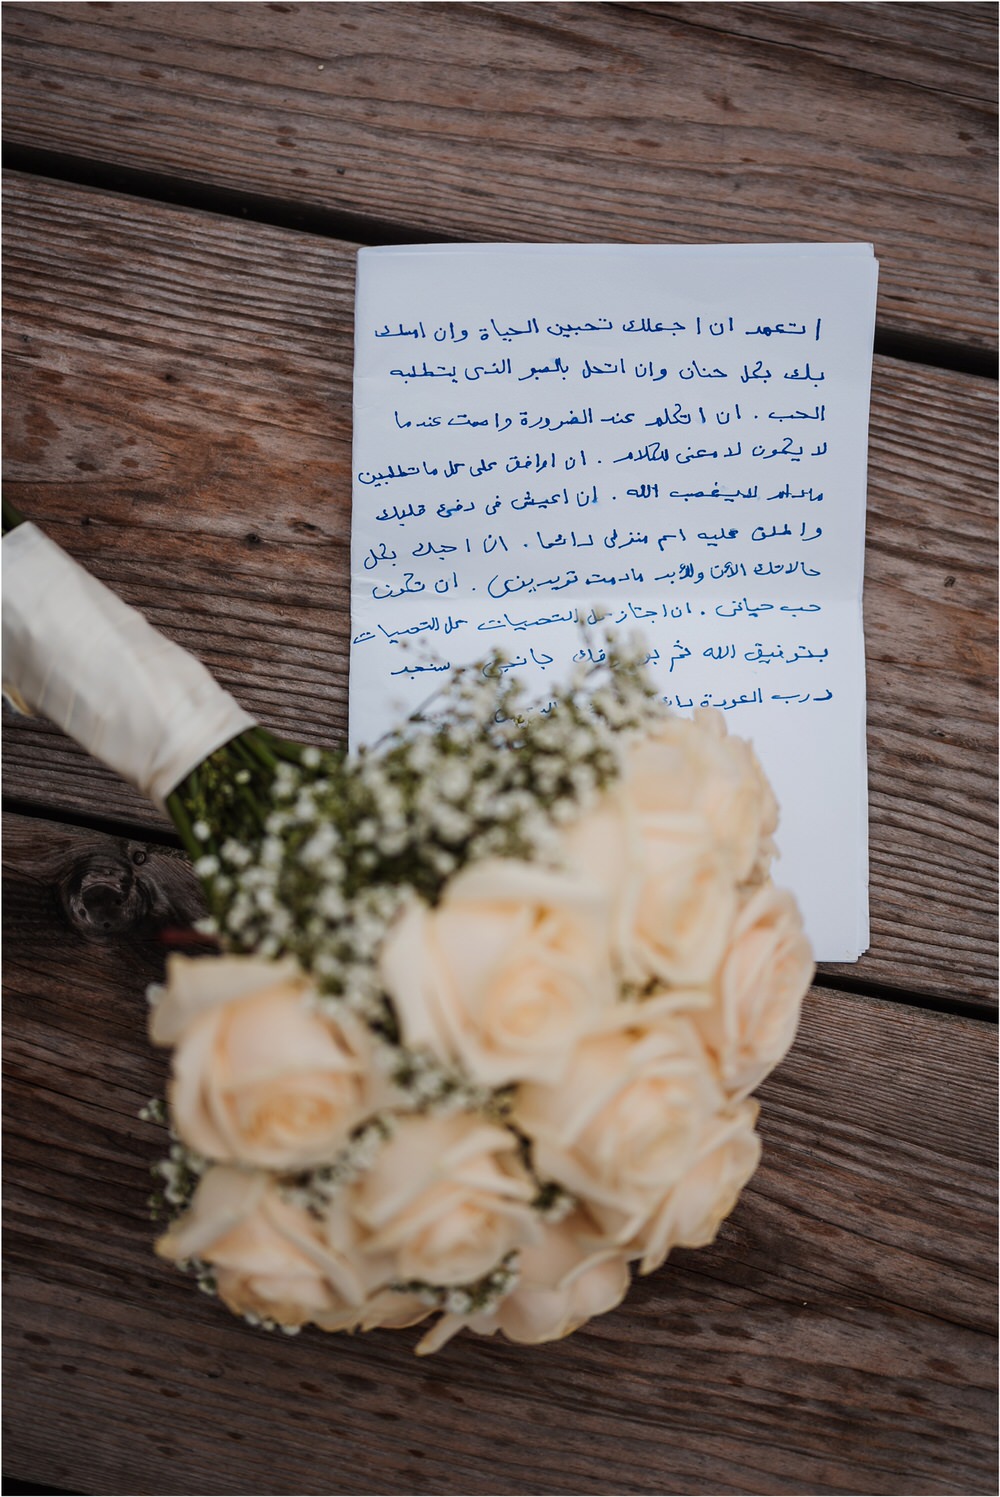 اتعهد ان اجعلك تحبين الحياة وان امسك
بك بكل حنان وان اتحل بالصبر الذى يتطلبه
الحب . ان اتكلم عند الضرورة واصمت عندما
لا يكون لا معنى للكلام . ان اوافق على كل ما تطلبين
مادام لا يغضب الله . ان اعيش فى دفئ قلبك
واطلق عليه اسم منزلى دائما . ان احبك بكل
حالاتك الأن وللأبد مادمت تريدينى . ان تكون
حب حياتى . ان اجتاز كل التحديات كل التحديات
بتوفيق الله ثم جانبى سنجد
درب العودة